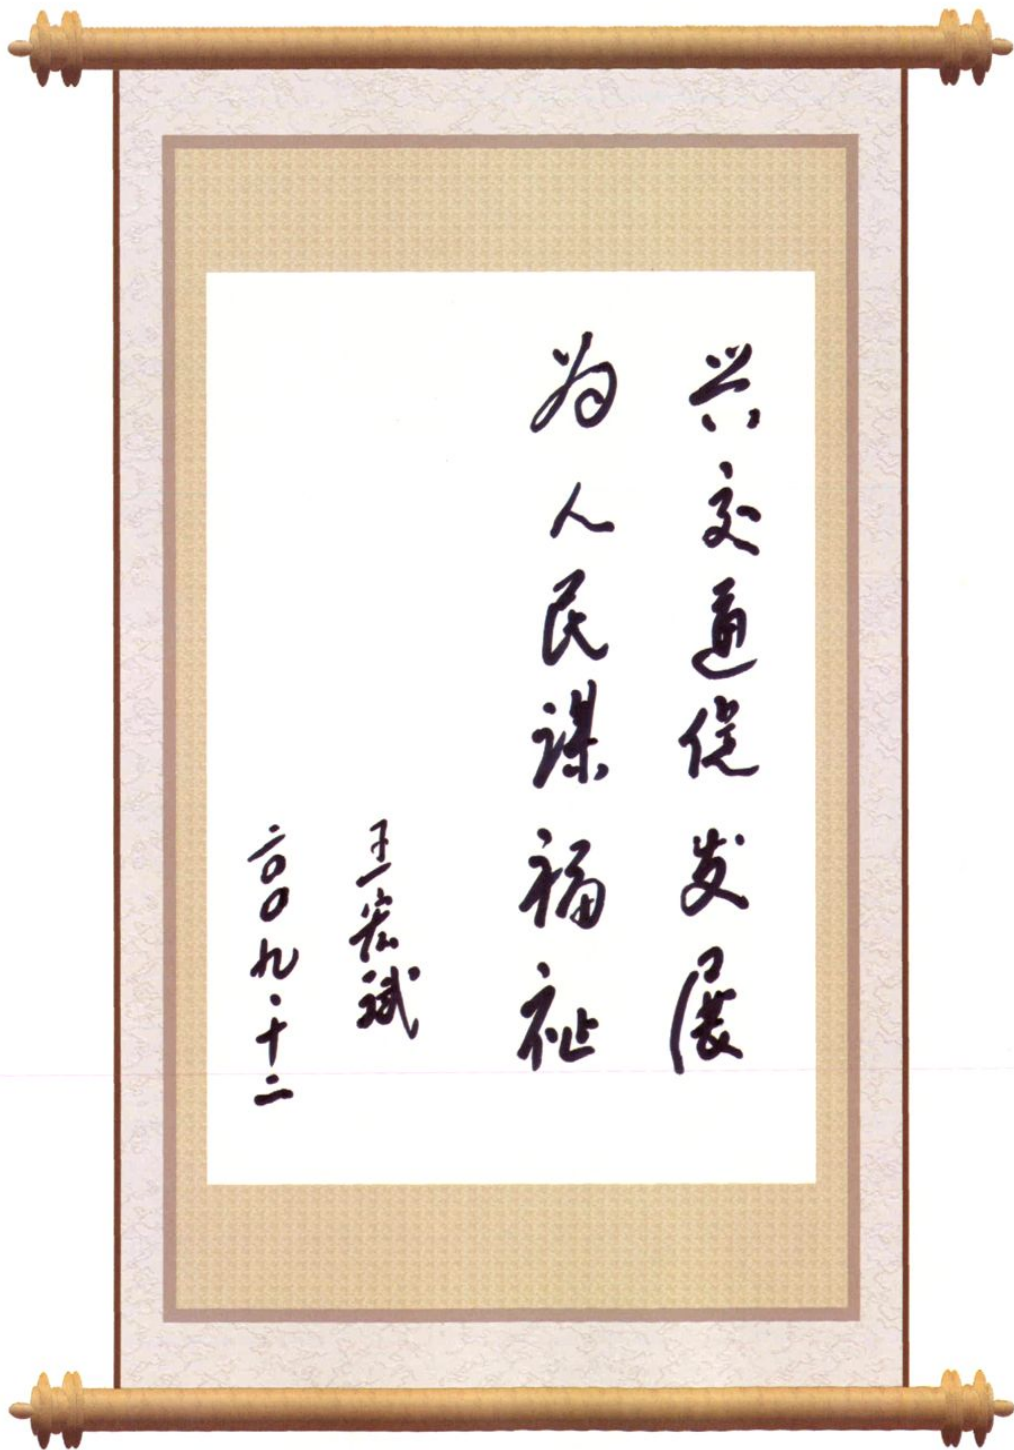 兴交通促发展
为人民谋福祉
王宏斌
二〇〇九·十二